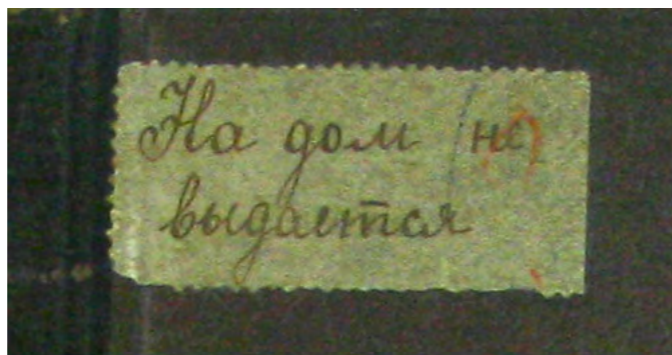 На дом не
выдается